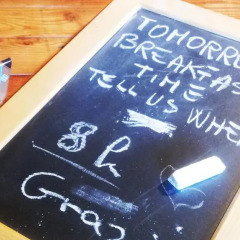 TOMORRO
BREAKFAS
TIME
TELL US WHE
8 h
Graz